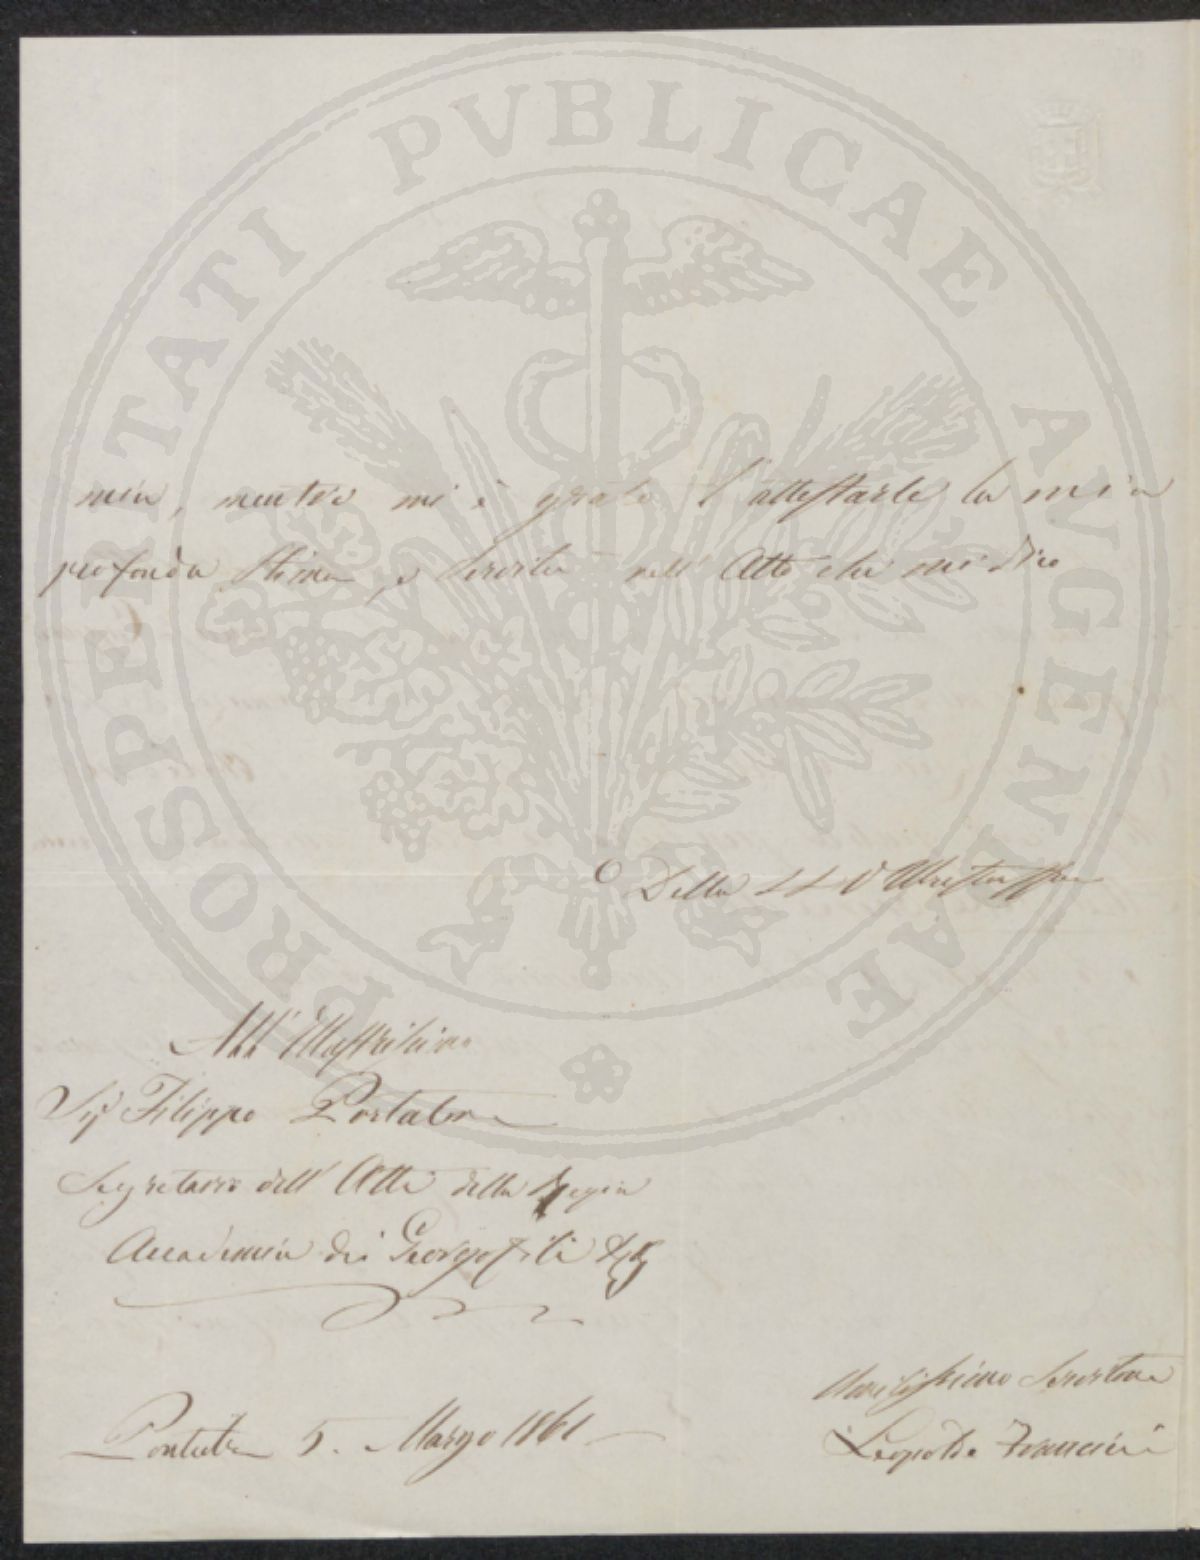 PROSPERITATI PUBLICAE AVGENDAE
mia, mentre mi è grato l'attestarle la mia
profonda stima, e servitù nell'Atto che mi dico
Della
All' Illustrissimo
Sig Filippo
Segretario dell' Atti della Regia
Accademia dei Georgofili
5. Marzo 1861
Umilissimo Servitore
Leopoldo